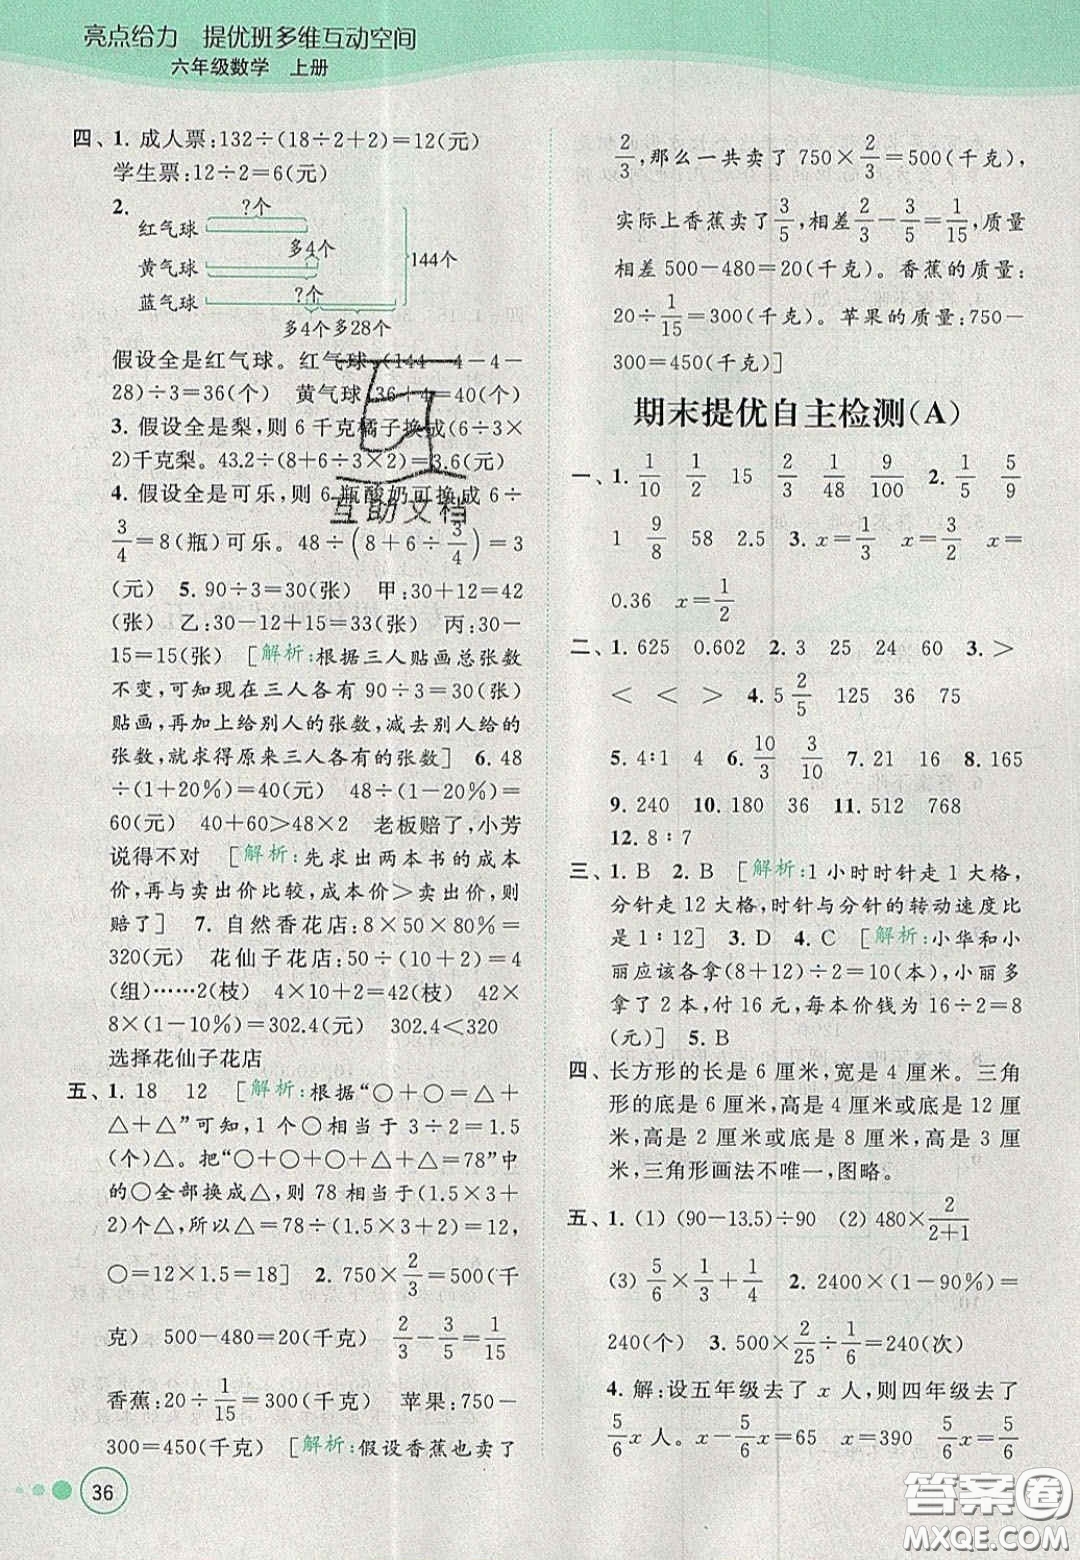 亮点给力 提优班多维互动空间
六年级数学 上册
四、1. 成人票:132÷(18÷2+2)=12(元)
学生票:12÷2=6(元)
2.
?个
红气球
多4个
黄气球
144个
?个
蓝气球
多4个多28个
假设全是红气球。红气球:(144-4-4-
28)÷3=36(个) 黄气球:36+4=40(个)
3. 假设全是梨,则 6 千克橘子换成(6÷3×
2)千克梨。43.2÷(8+6÷3×2)=3.6(元)
4. 假设全是可乐,则 6 瓶酸奶可换成 6÷
3/4=8(瓶)可乐。48÷(8+6÷3/4)=3
(元) 5. 90÷3=30(张) 甲:30+12=42
(张) 乙:30-12+15=33(张) 丙:30-
15=15(张) [解析:根据三人贴画总张数
不变,可知现在三人各有 90÷3=30(张)
贴画,再加上给别人的张数,减去别人给的
张数,就求得原来三人各有的张数] 6. 48
÷(1+20%)=40(元) 48÷(1-20%)=
60(元) 40+60>48×2 老板赔了,小芳
说得不对 [解析:先求出两本书的成本
价,再与卖出价比较,成本价>卖出价,则
赔了] 7. 自然香花店:8×50×80%=
320(元) 花仙子花店:50÷(10+2)=4
(组)……2(枝) 4×10+2=42(枝) 42×
8×(1-10%)=302.4(元) 302.4<320
选择花仙子花店
五、1. 18 12 [解析:根据“○+○=△+
△+△”可知,1 个○相当于 3÷2=1.5
(个)△。把“○+○+○+△+△=78”中
的○全部换成△,则 78 相当于(1.5×3+
2)个△,所以△=78÷(1.5×3+2)=12,
○=12×1.5=18] 2. 750×2/3=500(千
克) 500-480=20(千克) 2/3-3/5=1/15
香蕉:20÷1/15=300(千克) 苹果:750-
300=450(千克) [解析:假设香蕉也卖了
36
2/3,那么一共卖了 750×2/3=500(千克),
实际上香蕉卖了3/5,相差2/3-3/5=1/15,质量
相差 500-480=20(千克)。香蕉的质量:
20÷1/15=300(千克)。苹果的质量:750-
300=450(千克)]
期末提优自主检测(A)
一、1. 1/10 1/2 15 2/3 1/48 9/100 2. 1/5 5/9
1 9/8 58 2.5 3. x=1/3 x=3/4 x=
0.36 x=1/2
二、1. 625 0.602 2. 3 25 24 60 3. >
< < > 4. 5 2/5 125 36 75
5. 4∶1 4 6. 10/3 3/10 7. 21 16 8. 165
9. 240 10. 180 36 11. 512 768
12. 8∶7
三、1. B 2. B [解析:1 小时时针走 1 大格,
分针走 12 大格,时针与分针的转动速度比
是 1∶12] 3. D 4. C [解析:小华和小
丽应该各拿(8+12)÷2=10(本),小丽多
拿了 2 本,付 16 元,每本价钱为 16÷2=8
(元)] 5. B
四、长方形的长是 6 厘米,宽是 4 厘米。三角
形的底是 6 厘米,高是 4 厘米或底是 12 厘
米,高是 2 厘米或底是 8 厘米,高是 3 厘
米,三角形画法不唯一,图略。
五、1. (1) (90-13.5)÷90 (2) 480×2/(2+1)
(3) 5/6×1/3+1/4 2. 2400×(1-90%)=
240(个) 3. 500×2/25÷1/6=240(次)
4. 解:设五年级去了 x 人,则四年级去了
5/6x 人。x-5/6x=65 x=390 5/6x=5/6×
互助文档
答案圈
MXQE.COM